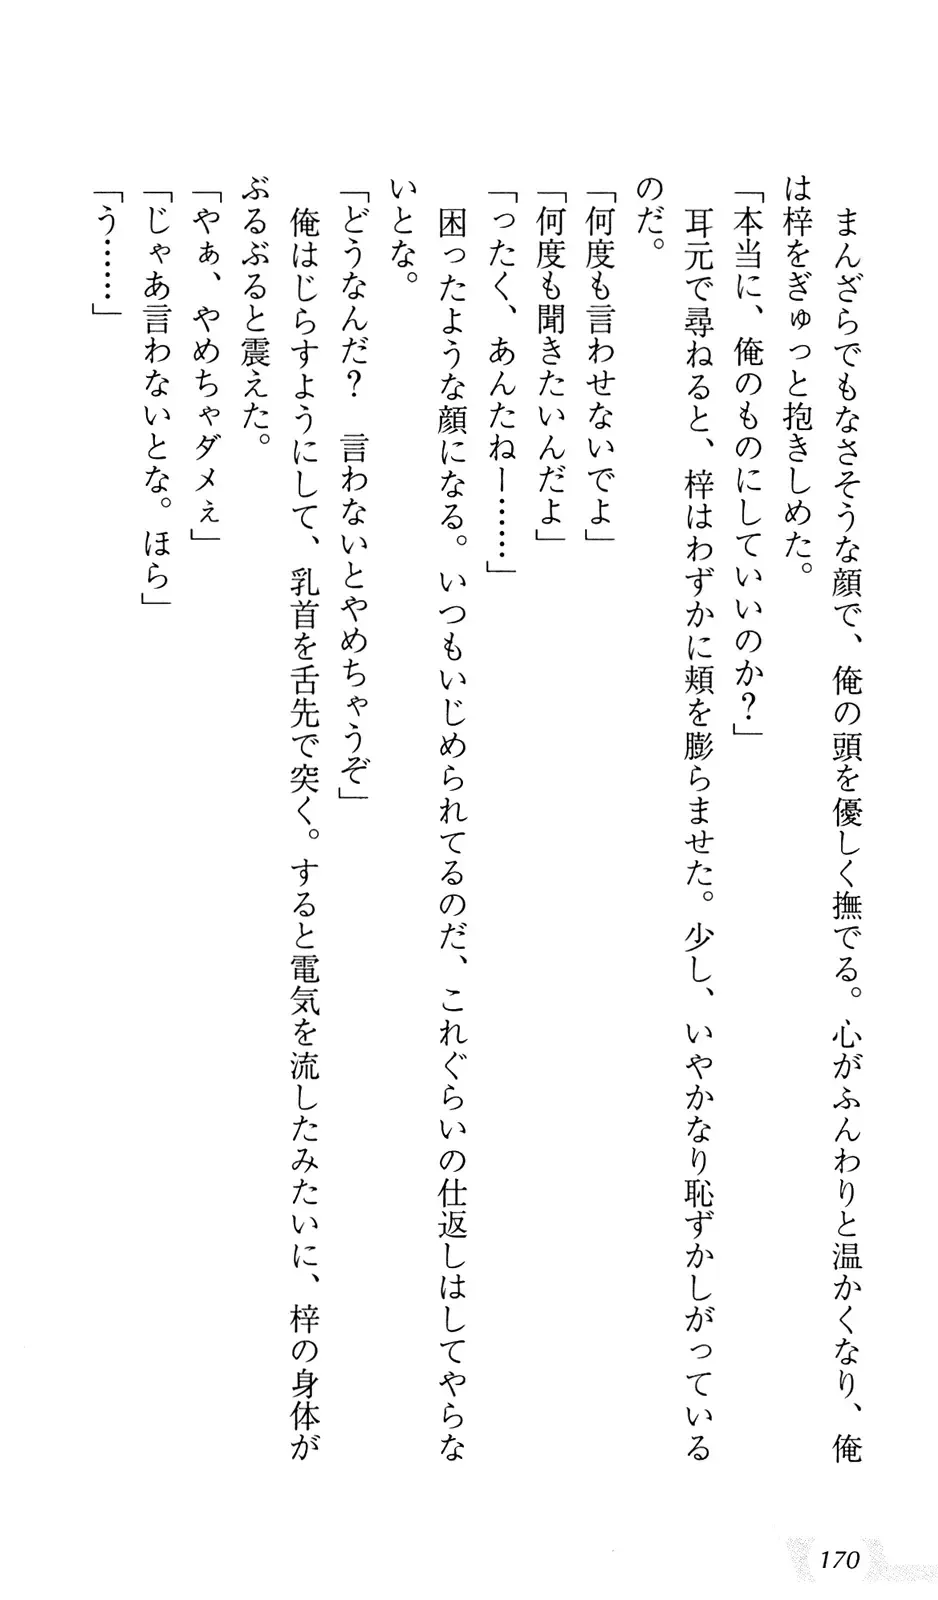 まんざらでもなさそうな顔で、俺の頭を優しく撫でる。心がふんわりと温かくなり、俺
は梓をぎゅっと抱きしめた。
「本当に、俺のものにしていいのか？」
耳元で尋ねると、梓はわずかに頬を膨らませた。少し、いやかなり恥ずかしがっている
のだ。
「何度も言わせないでよ」
「何度も聞きたいんだよ」
「ったく、あんたねー……」
困ったような顔になる。いつもいじめられてるのだ、これぐらいの仕返しはしてやらな
いとな。
「どうなんだ？　言わないとやめちゃうぞ」
俺はじらすようにして、乳首を舌先で突く。すると電気を流したみたいに、梓の身体が
ぶるぶると震えた。
「やぁ、やめちゃダメぇ」
「じゃあ言わないとな。ほら」
「う……」
170